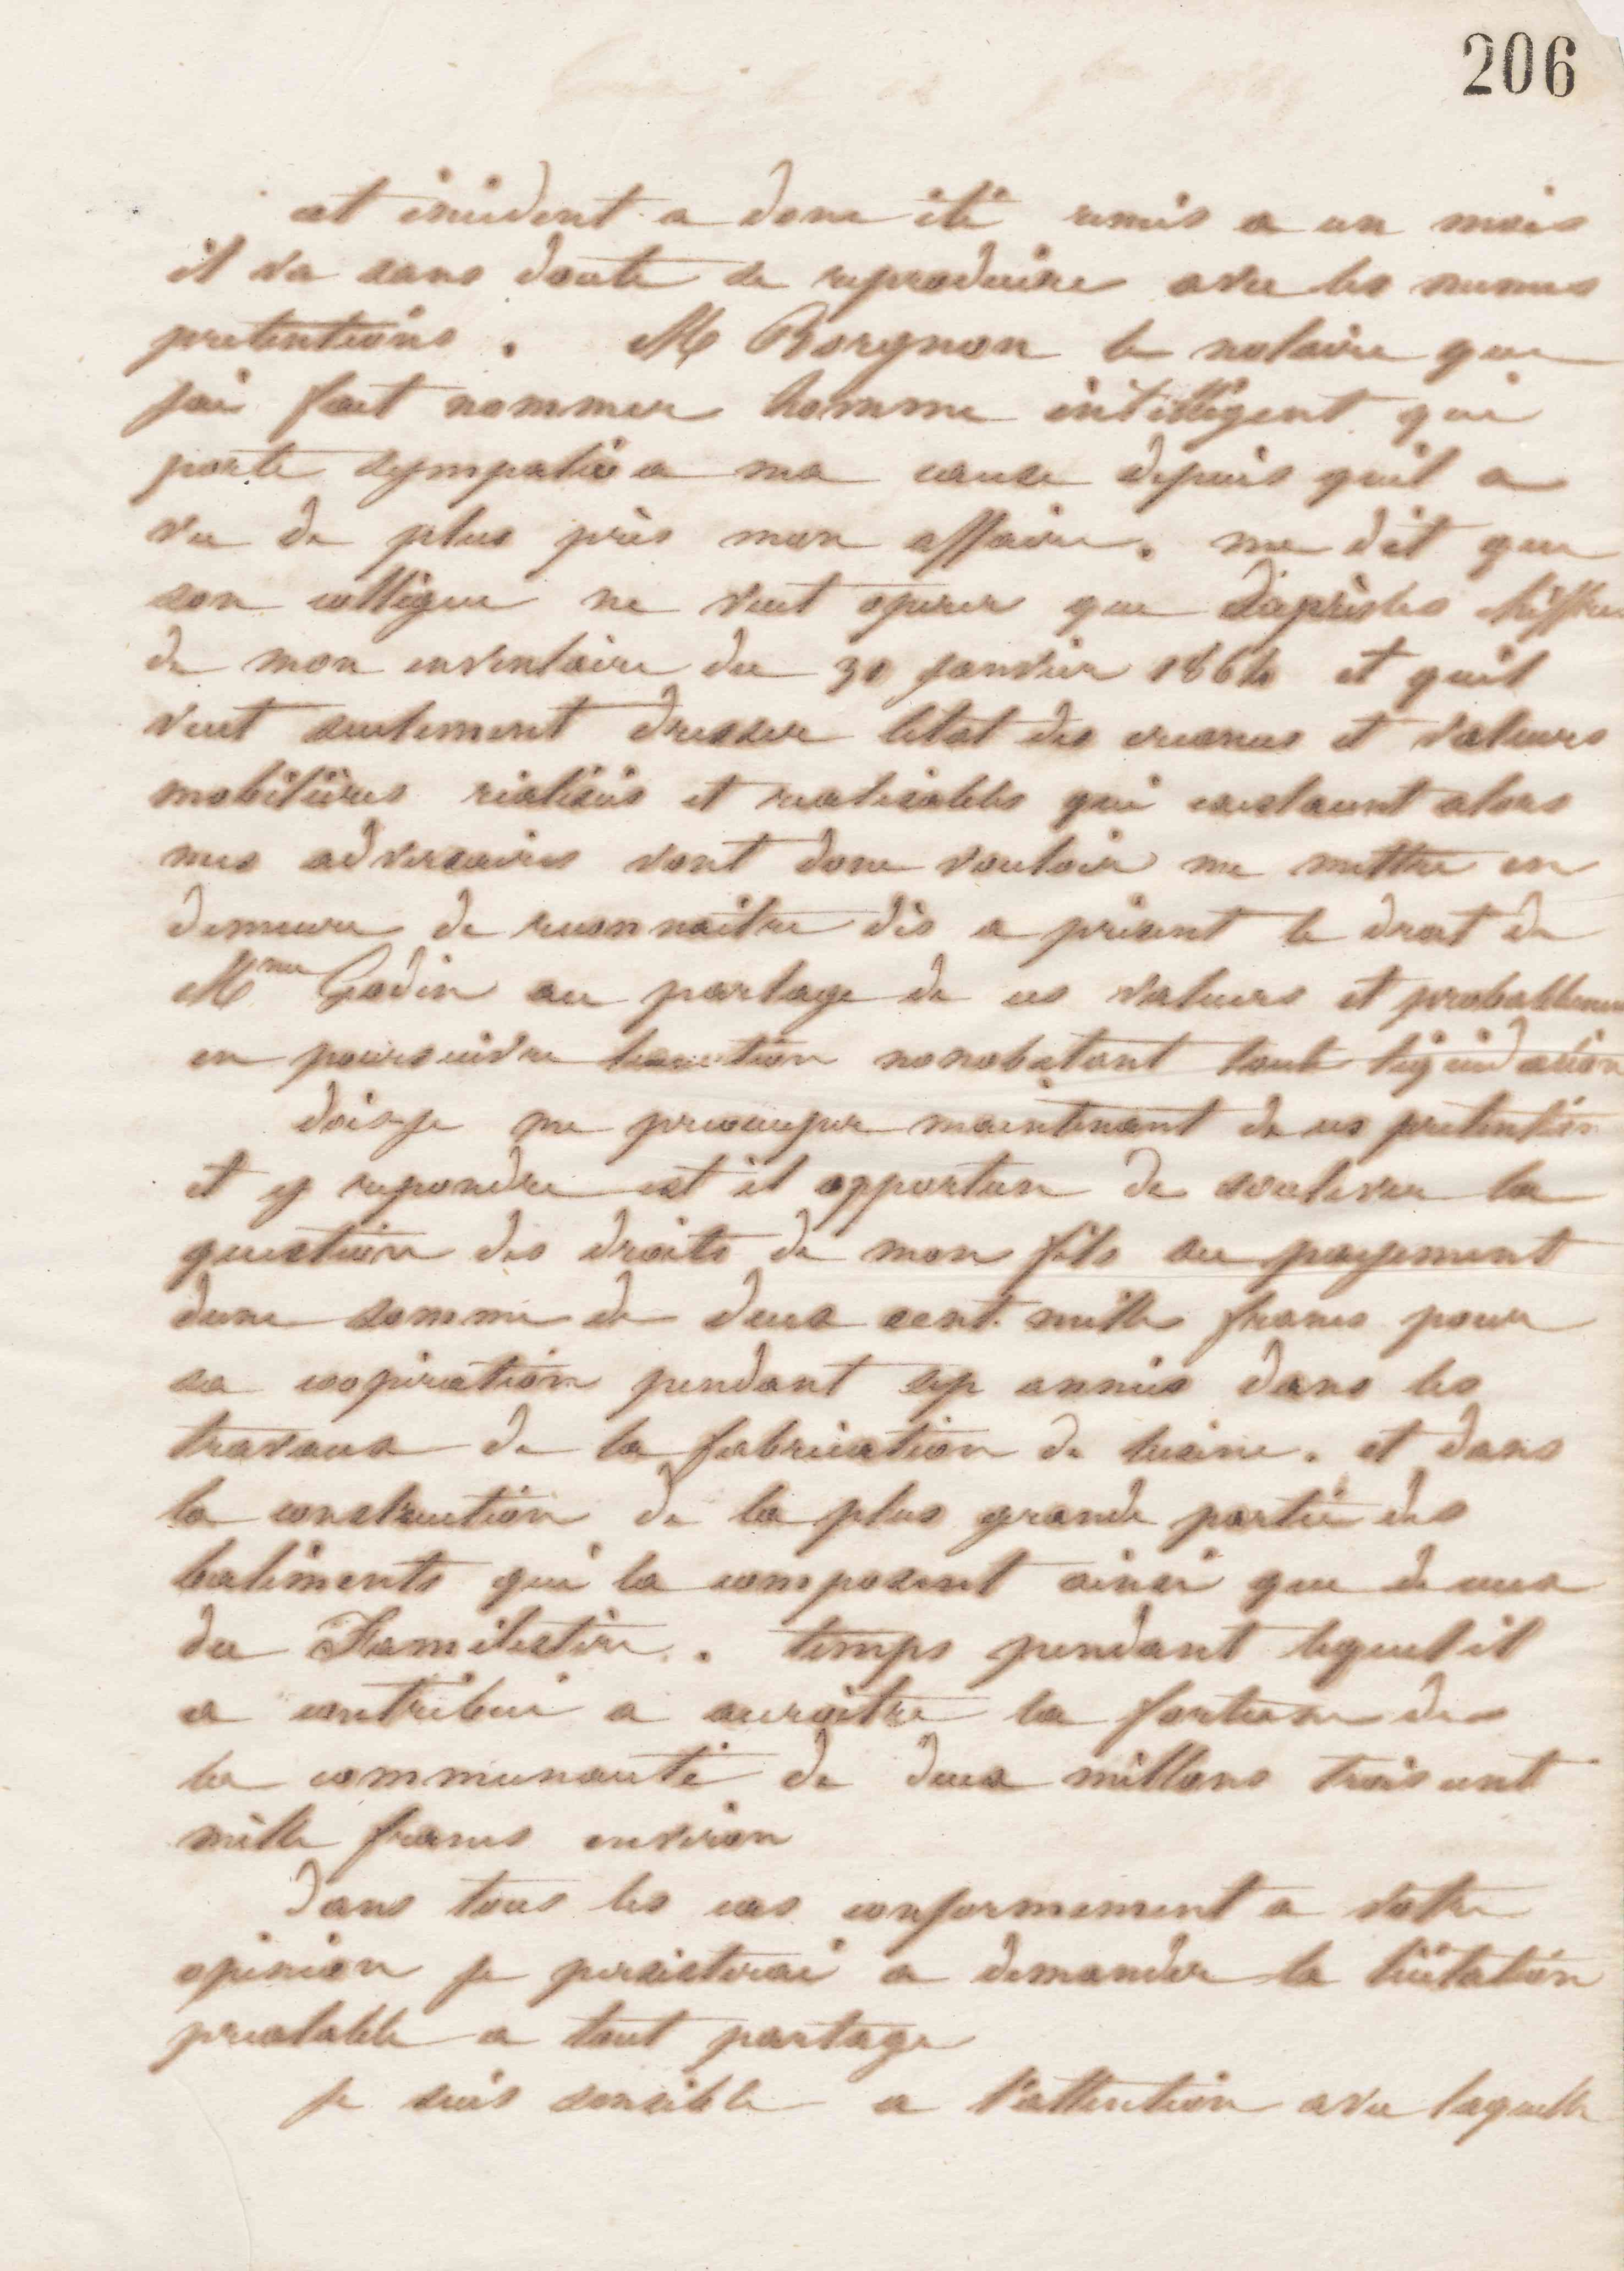 206
cet incident a donc été remis a un mois
il va sans doute se reproduire avec les memes
pretentions. M Borgnon le notaire que
jai fait nommer homme intelligent qui
porte sympatie a ma cause depuis quil a
vu de plus près mon affaire. me dit que
son collègue ne veut operer que d'après les chiffres
de mon inventaire du 30 janvier 1864 et quil
veut seulement dresser letat des creances et valeurs
mobilières réalisées et realisables qui existaient alors
mes adversaires vont donc vouloir me mettre en
demeure de reconnaitre dès a présent le droit de
Mme Godin au partage de ces valeurs et probablement
en poursuivre nonobstant toute liquidation
dois-je me préoccuper maintenant de ces pretentions
et y repondre est il opportun de soulever la
question des droits de mon fils au payement
dune somme de deux cent mille francs pour
sa coopération pendant sep années dans les
travaux de la fabrication de lusine. et dans
la construction de la plus grande partie des
batiments qui la composent ainsi que de ceux
du Familistère. temps pendant lequel il
a contribué a accroitre la fortune de
la communauté de deux millons trois cent
mille francs environ
Dans tous les cas conformement a votre
opinion je persisterai a demander la licitation
prealable a tout partage
je suis sensible a l'attention avec laquelle